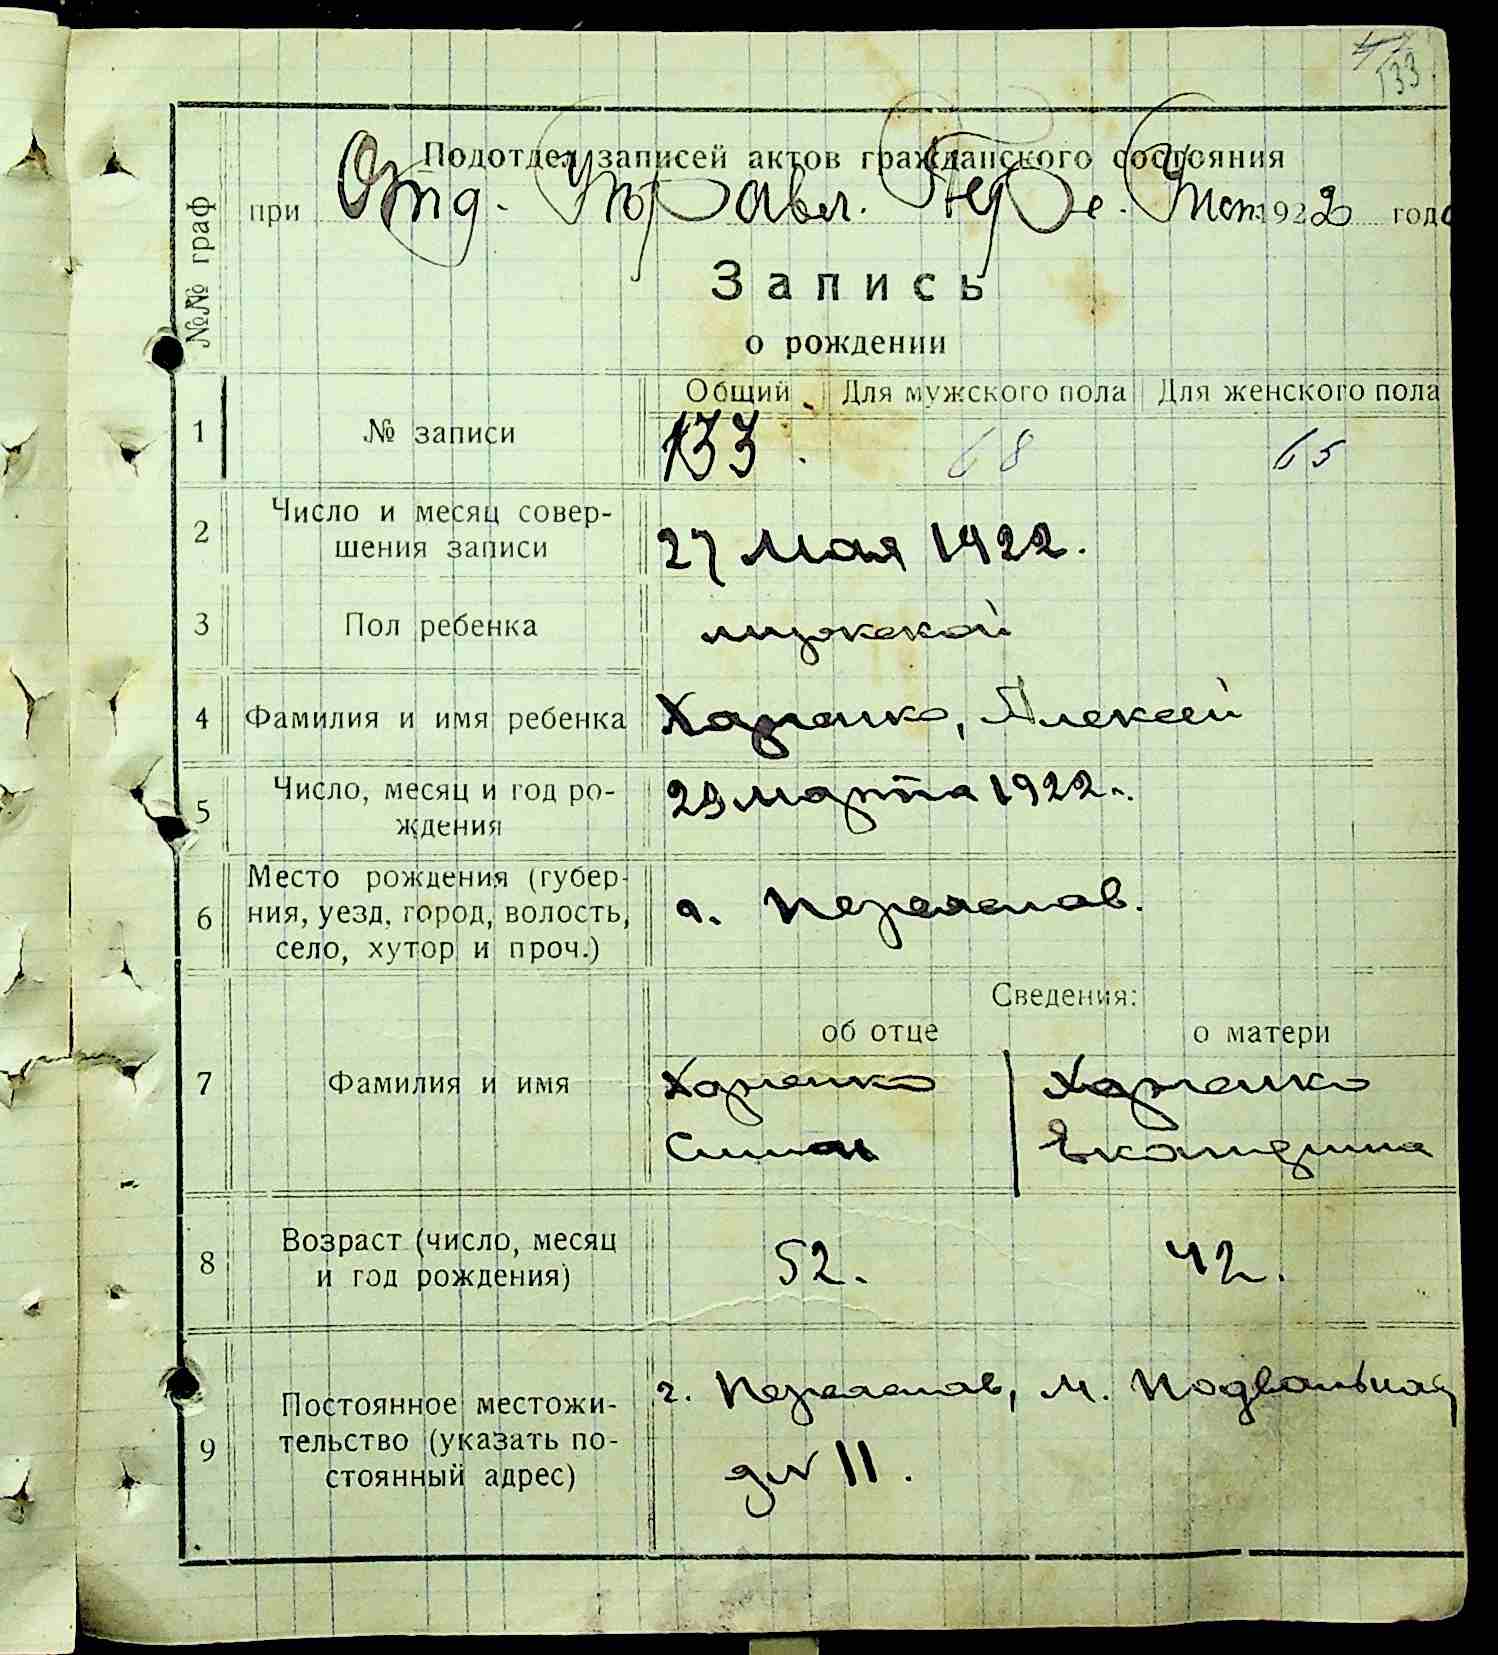 133
Подотдел записей актов гражданского состояния
при Отд. Управл. Пер. Уисп. 1922 года
№№ граф
Запись
о рождении
Общий Для мужского пола Для женского пола
1 № записи 133. 68 65
2 Число и месяц совер-
шения записи 27 мая 1922.
3 Пол ребенка мужской
4 Фамилия и имя ребенка Харенко, Алексей
5 Число, месяц и год ро-
ждения 29 марта 1922.
6 Место рождения (губер-
ния, уезд, город, волость,
село, хутор и проч.) г. Переяслав.
Сведения:
об отце о матери
7 Фамилия и имя Харенко Харенко
Симон Екатерина
8 Возраст (число, месяц
и год рождения) 52. 42.
9 Постоянное местожи-
тельство (указать по-
стоянный адрес) г. Переяслав, М. Подвальная
д№ 11.